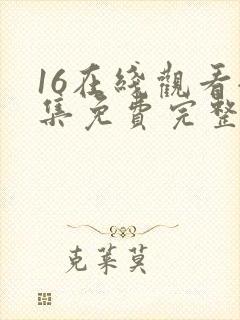 16在綫觀看
集免費完整
克萊莫